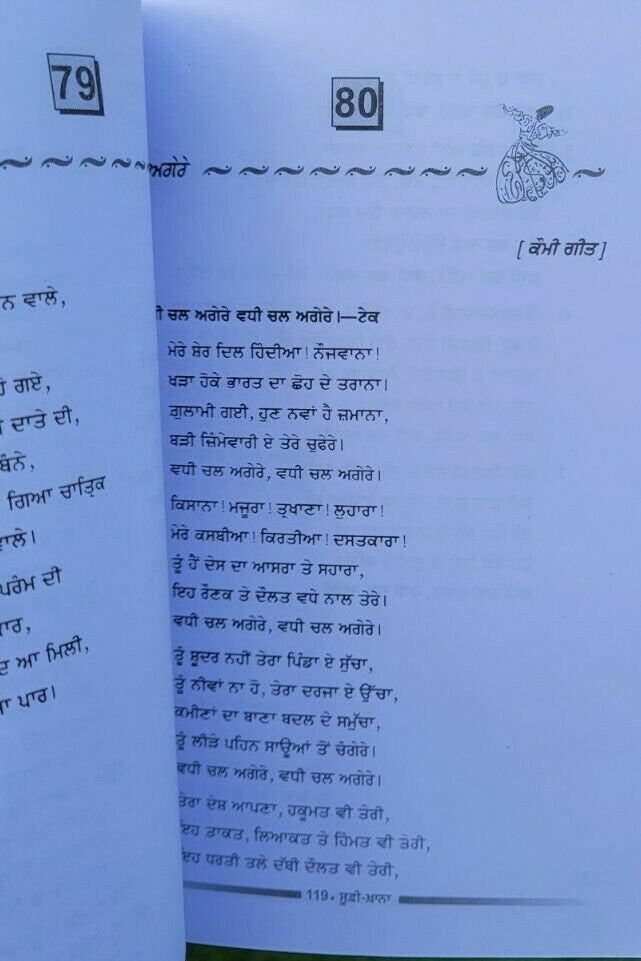 79
ਨ ਵਾਲੇ,
ਗਏ,
ਦਾਤੇ ਦੀ,
ਬੰਨੇ,
ਗਿਆ ਚਾਤ੍ਰਿਕ
ਵਾਲੇ।
ਦੀ
ਆ ਮਿਲੀ,
ਪਾਰ।
80
ਅਗੇਰੇ
[ ਕੌਮੀ ਗੀਤ ]
ਚਲ ਅਗੇਰੇ ਵਧੀ ਚਲ ਅਗੇਰੇ।—ਟੇਕ
ਮੇਰੇ ਸ਼ੇਰ ਦਿਲ ਹਿੰਦੀਆ! ਨੌਜਵਾਨਾ!
ਖੜਾ ਹੋਕੇ ਭਾਰਤ ਦਾ ਛੋਹ ਦੇ ਤਰਾਨਾ।
ਗ਼ੁਲਾਮੀ ਗਈ, ਹੁਣ ਨਵਾਂ ਹੈ ਜ਼ਮਾਨਾ,
ਬੜੀ ਜ਼ਿੰਮੇਵਾਰੀ ਏ ਤੇਰੇ ਚੁਫੇਰੇ।
ਵਧੀ ਚਲ ਅਗੇਰੇ, ਵਧੀ ਚਲ ਅਗੇਰੇ।
ਕਿਸਾਨਾ! ਮਜੂਰਾ! ਤ੍ਰਖਾਣਾ! ਲੁਹਾਰਾ!
ਮੇਰੇ ਕਸਬੀਆ! ਕਿਰਤੀਆ! ਦਸਤਕਾਰਾ!
ਤੂੰ ਹੈਂ ਦੇਸ ਦਾ ਆਸਰਾ ਤੇ ਸਹਾਰਾ,
ਇਹ ਰੌਣਕ ਤੇ ਦੌਲਤ ਵਧੇ ਨਾਲ ਤੇਰੇ।
ਵਧੀ ਚਲ ਅਗੇਰੇ, ਵਧੀ ਚਲ ਅਗੇਰੇ।
ਤੂੰ ਸੂਦਰ ਨਹੀਂ ਤੇਰਾ ਪਿੰਡਾ ਏ ਸੁੱਚਾ,
ਤੂੰ ਨੀਵਾਂ ਨਾ ਹੋ, ਤੇਰਾ ਦਹਜਾ ਏ ਉੱਚਾ,
ਕਮੀਣਾਂ ਦਾ ਬਾਣਾ ਬਦਲ ਦੇ ਸਮੁੱਚਾ,
ਤੂੰ ਲੀੜੇ ਪਹਿਨ ਸਾਊਆਂ ਤੋਂ ਚੰਗੇਰੇ।
ਵਧੀ ਚਲ ਅਗੇਰੇ, ਵਧੀ ਚਲ ਅਗੇਰੇ।
ਤੇਰਾ ਦੇਸ਼ ਆਪਣਾ, ਹਕੂਮਤ ਵੀ ਤੇਰੀ,
ਇਹ ਤਾਕਤ, ਲਿਆਕਤ ਤੇ ਹਿੰਮਤ ਵੀ ਤੇਰੀ,
ਇਹ ਧਰਤੀ ਤਲੇ ਦੱਬੀ ਦੌਲਤ ਵੀ ਤੇਰੀ,
119 • ਸੂਫ਼ੀ-ਖ਼ਾਨਾ